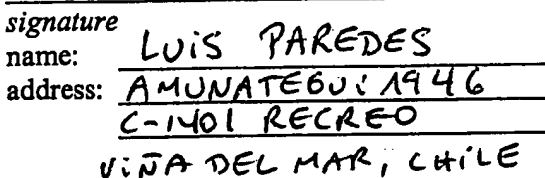 signature
name: LUIS PAREDES
address: AMUNATEGUI 1946
C-1401 RECREO
VIÑA DEL MAR, CHILE